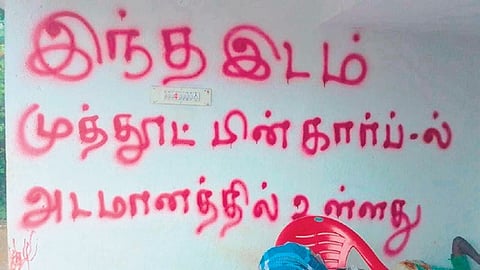 இந்த இடம்
முத்தூட் பின் கார்ப்-ல்
அடமானத்தில் உள்ளது